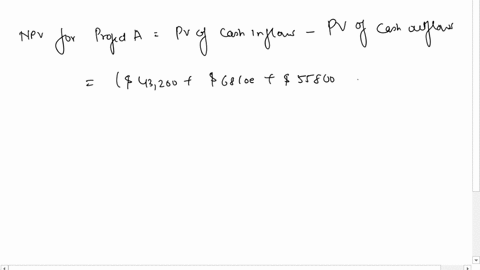 NPV for Project A = PV of Cash inflow - PV of Cash outflow
= ($43,200 + $68100 + $55800